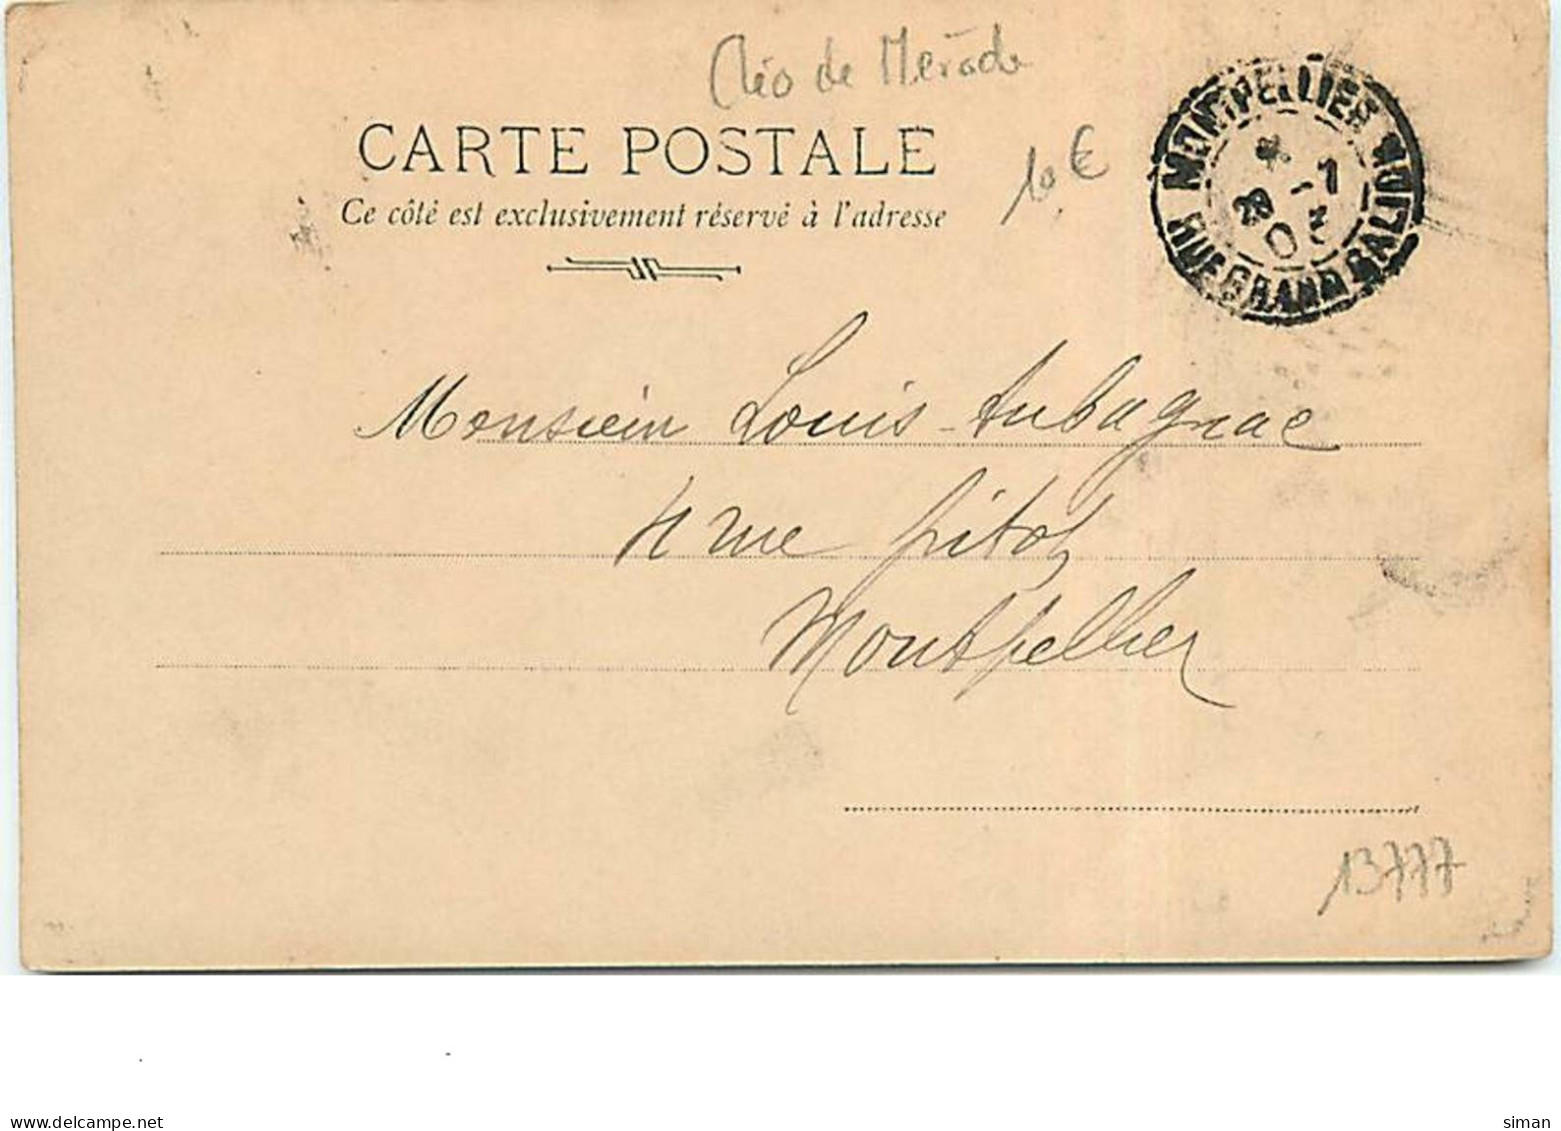 Cléo de Mérode
CARTE POSTALE
Ce côté est exclusivement réservé à l'adresse
10 €
MONTPELLIER
RUE GRAND GALION
Monsieur Louis Aubagnac
4 rue Pitot
Montpellier
13777
www.delcampe.net
siman